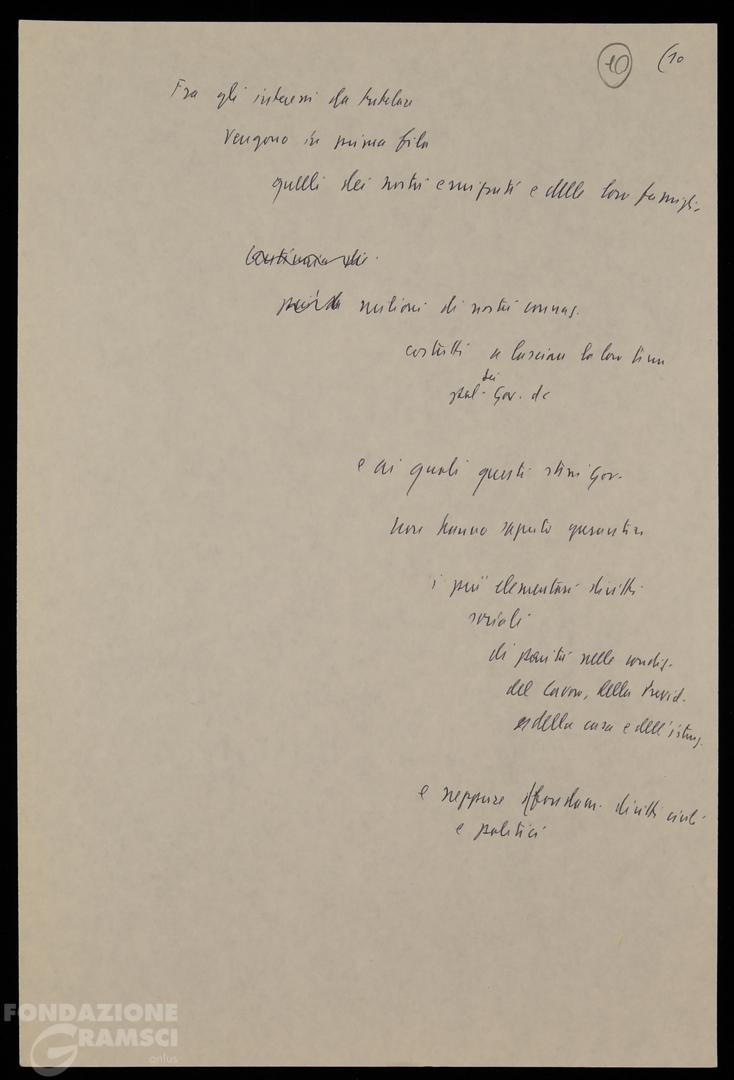 10 (10
Fra gli interessi da tutelare
vengono in prima fila
quelli dei nostri emigrati e delle loro famigli.
milioni di nostri connaz.
costretti a lasciare la loro terra
dei
Gov. dc
e ai quali questi stessi Gov.
non hanno saputo garantire
i più elementari diritti
sociali
di parità nelle condiz.
del lavoro, della Previd.
della casa e dell'istruz.
e neppure fondam. diritti civili
e politici
FONDAZIONE
GRAMSCI
onlus